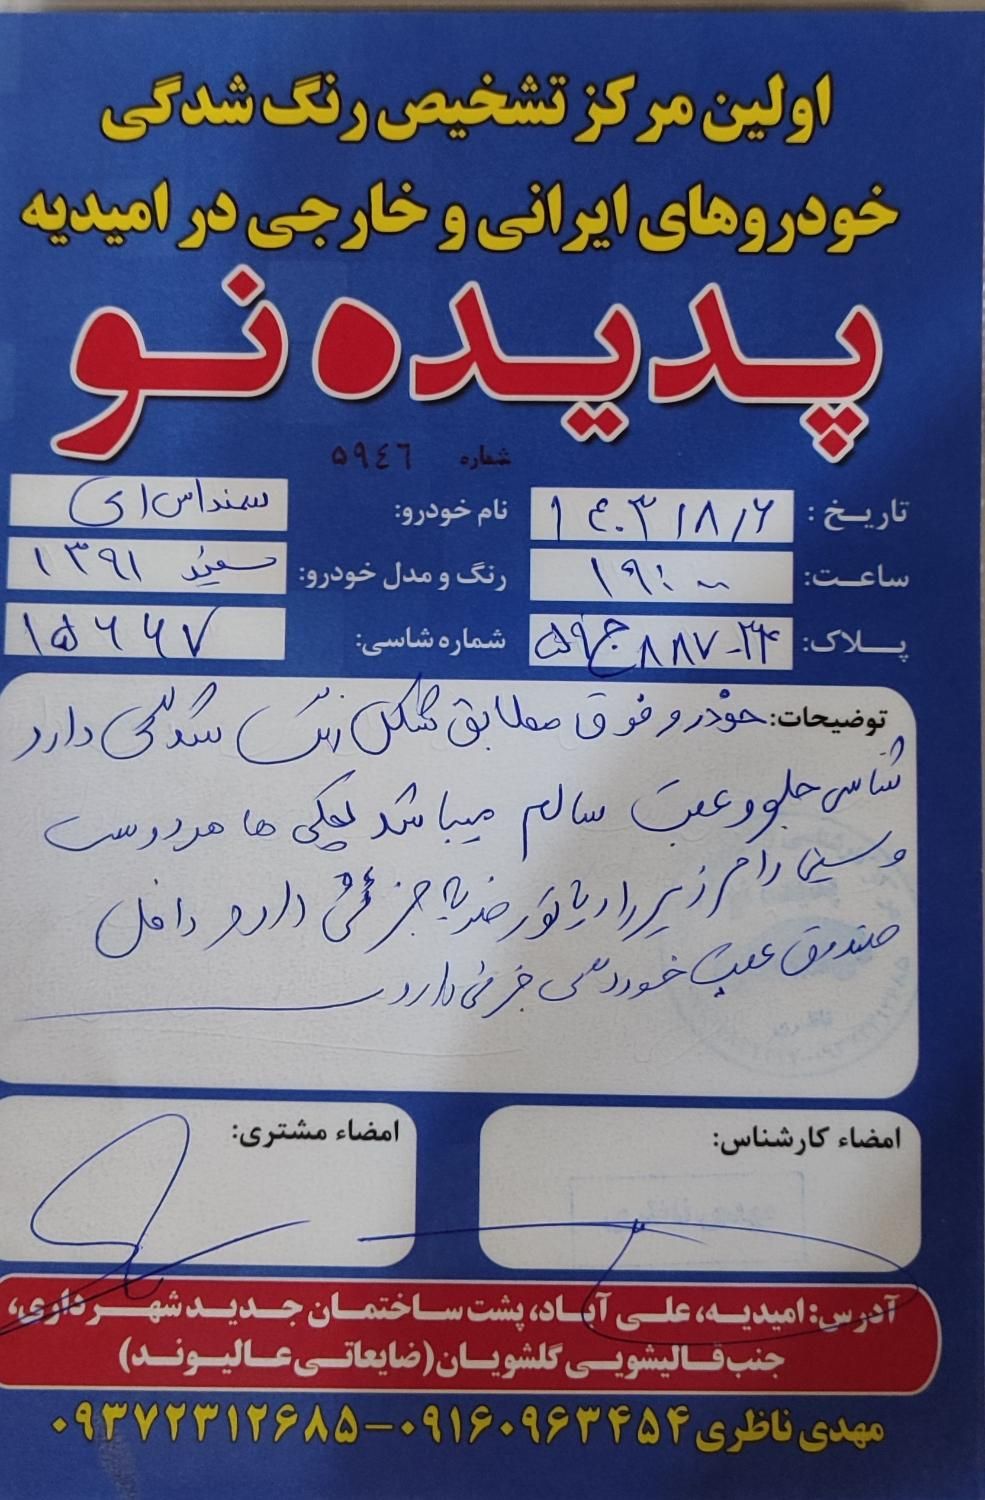 اولین مرکز تشخیص رنگ شدگی
خودروهای ایرانی و خارجی در امیدیه
پدیده نو
شماره ۵۹۴۶
تاریخ: ۱۴۰۳/۸/۶ نام خودرو: سمند اس ای
ساعت: ۱۹:۰۰ رنگ و مدل خودرو: سفید ۱۳۹۱
پلاک: ۵۹ج۸۸۷-۲۴ شماره شاسی: ۱۵۶۶۷
توضیحات: خودرو فوق مطابق شکل رنگ شدگی دارد
شاسی جلو و عقب سالم میباشد لچکی ها هر دو ست
و سینی رام زیر رادیاتور ضربه جزئی دارد داخل
صندوق عقب خوردگی جزئی دارد
امضاء کارشناس: امضاء مشتری:
آدرس: امیدیه، علی آباد، پشت ساختمان جدید شهرداری،
جنب قالیشویی گلشویان (ضایعاتی عالیوند)
مهدی ناظری ۰۹۱۶۰۹۶۳۴۵۴-۰۹۳۷۲۳۱۲۶۸۵